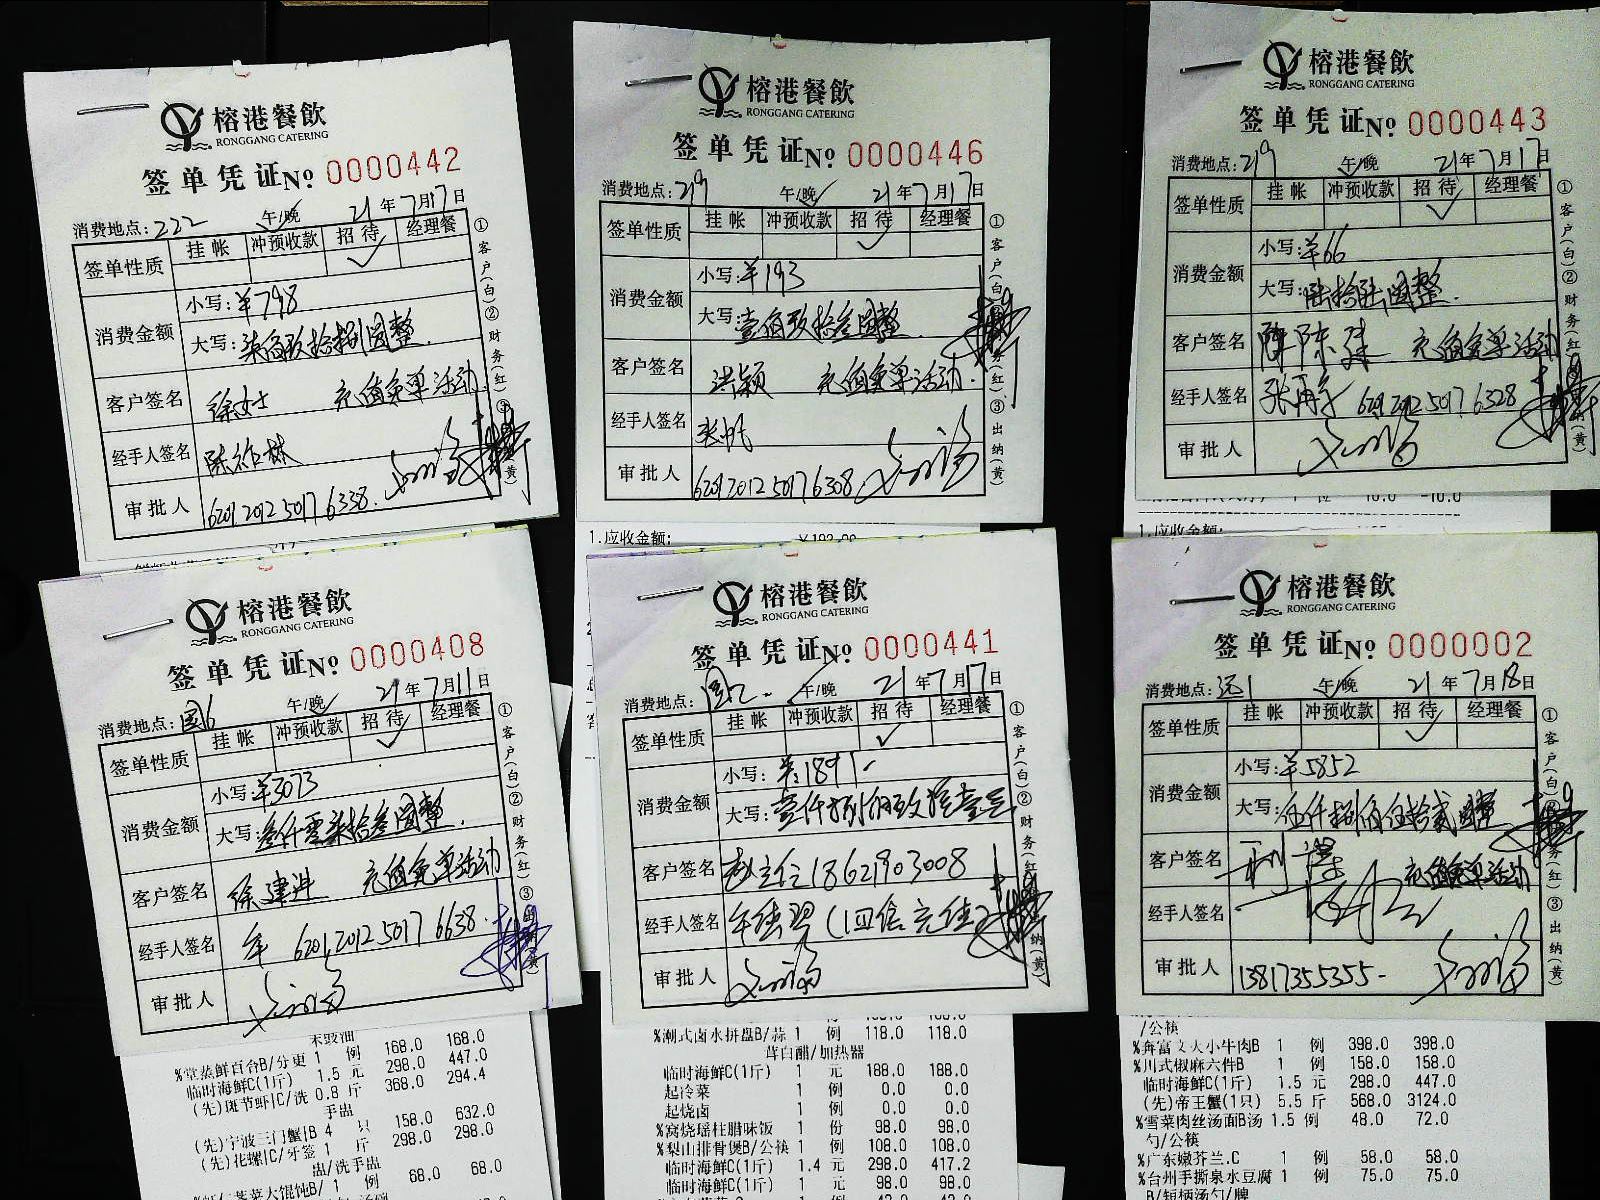 榕港餐飲
RONGGANG CATERING
签单凭证№ 0000442
消费地点: 222 午/晚 21年7月17日
签单性质 挂帐 冲预收款 招待 经理餐
✓
消费金额 小写: ¥798
大写: 柒佰玖拾捌圆整
客户签名 徐女士 充值免单活动
经手人签名
审批人 6201 2012 5017 6338
①客户(白)②财务(红)③
(黄)
榕港餐飲
RONGGANG CATERING
签单凭证№ 0000446
消费地点: 219 午/晚 21年7月17日
签单性质 挂帐 冲预收款 招待 经理餐
✓
消费金额 小写: ¥193
大写: 壹佰玖拾叁圆整
客户签名 洪颖 充值免单活动
经手人签名 张帆
审批人 6201 2012 5017 6308
①客户(白)
务(红)③出纳(黄)
1.应收金额:
榕港餐飲
RONGGANG CATERING
签单凭证№ 0000443
消费地点: 219 午/晚 21年7月17日
签单性质 挂帐 冲预收款 招待 经理餐
✓
消费金额 小写: ¥66
大写: 陆拾陆圆整
客户签名 充值免单活动
经手人签名 6201 2012 5017 6328
审批人
①客户(白)②财务(红)
(黄)
10.0 -10.0
1.应收金额:
榕港餐飲
RONGGANG CATERING
签单凭证№ 0000408
消费地点: 国6 午/晚 21年7月11日
签单性质 挂帐 冲预收款 招待 经理餐
✓
消费金额 小写: ¥3073
大写: 叁仟零柒拾叁圆整
客户签名 徐建进 充值免单活动
经手人签名 牟 6201 2012 5017 6638
审批人
①客户(白)②财务(红)③
末豉油
%堂蒸鲜百合B/分更 1 例 168.0 168.0
临时海鲜C(1斤) 1.5 元 298.0 447.0
(先)斑节虾|C/洗 0.8 斤 368.0 294.4
手盅
(先)宁波三门蟹|B 4 只 158.0 632.0
(先)花螺|C/牙签 1 斤 298.0 298.0
盅/洗手盅
荠菜大馄饨B/ 1 例 68.0 68.0
榕港餐飲
RONGGANG CATERING
签单凭证№ 0000441
消费地点: 午/晚 21年7月17日
签单性质 挂帐 冲预收款 招待 经理餐
✓
消费金额 小写: ¥: 1891-
大写: 壹仟捌佰玖拾壹元
客户签名 赵主任 18621903008
经手人签名 (四倍充值)
审批人
①客户(白)②财务(红)
纳(黄)
%潮式卤水拼盘B/蒜 1 例 118.0 118.0
茸白醋/加热器
临时海鲜C(1斤) 1 元 188.0 188.0
起冷菜 1 例 0.0 0.0
起烧卤 1 例 0.0 0.0
%窝烧瑶柱腊味饭 1 份 98.0 98.0
%梨山排骨煲B/公筷 1 例 108.0 108.0
临时海鲜C(1斤) 1.4 元 298.0 417.2
临时海鲜C(1斤) 1 元 98.0 98.0
榕港餐飲
RONGGANG CATERING
签单凭证№ 0000002
消费地点: 远1 午/晚 21年7月18日
签单性质 挂帐 冲预收款 招待 经理餐
✓
消费金额 小写: ¥5852
大写: 伍仟捌佰伍拾贰圆整
客户签名 充值免单活动
经手人签名
审批人 13817355355-
①客户(白)
务(红)③出纳(黄)
/公筷
%奔富文火小牛肉B 1 例 398.0 398.0
%川式椒麻六件B 1 例 158.0 158.0
临时海鲜C(1斤) 1.5 元 298.0 447.0
(先)帝王蟹(1只) 5.5 斤 568.0 3124.0
%雪菜肉丝汤面B汤 1.5 例 48.0 72.0
勺/公筷
%广东嫩芥兰.C 1 例 58.0 58.0
%台州手撕泉水豆腐 1 例 75.0 75.0
B/短柄汤勺/牌